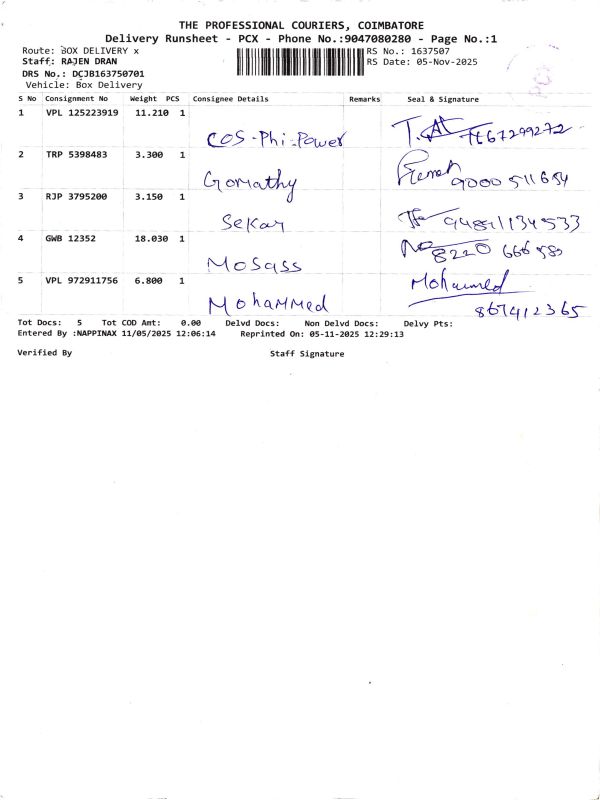 THE PROFESSIONAL COURIERS, COIMBATORE
Delivery Runsheet - PCX - Phone No.:9047080280 - Page No.:1
Route: BOX DELIVERY x
RS No.: 1637507
Staff: RAJEN DRAN
RS Date: 05-Nov-2025
DRS No.: DCJB163750701
Vehicle: Box Delivery
S No Consignment No Weight PCS Consignee Details Remarks Seal & Signature
1 VPL 125223919 11.210 1
COS-Phi-Power
2 TRP 5398483 3.300 1
Gomathy 9000 511654
3 RJP 3795200 3.150 1
Sekar
4 GWB 12352 18.030 1
Mosass 8220
5 VPL 972911756 6.800 1 Mohammed
Mohammed 867412365
Tot Docs: 5 Tot COD Amt: 0.00 Delvd Docs: Non Delvd Docs: Delvy Pts:
Entered By :NAPPINAX 11/05/2025 12:06:14 Reprinted On: 05-11-2025 12:29:13
Verified By Staff Signature